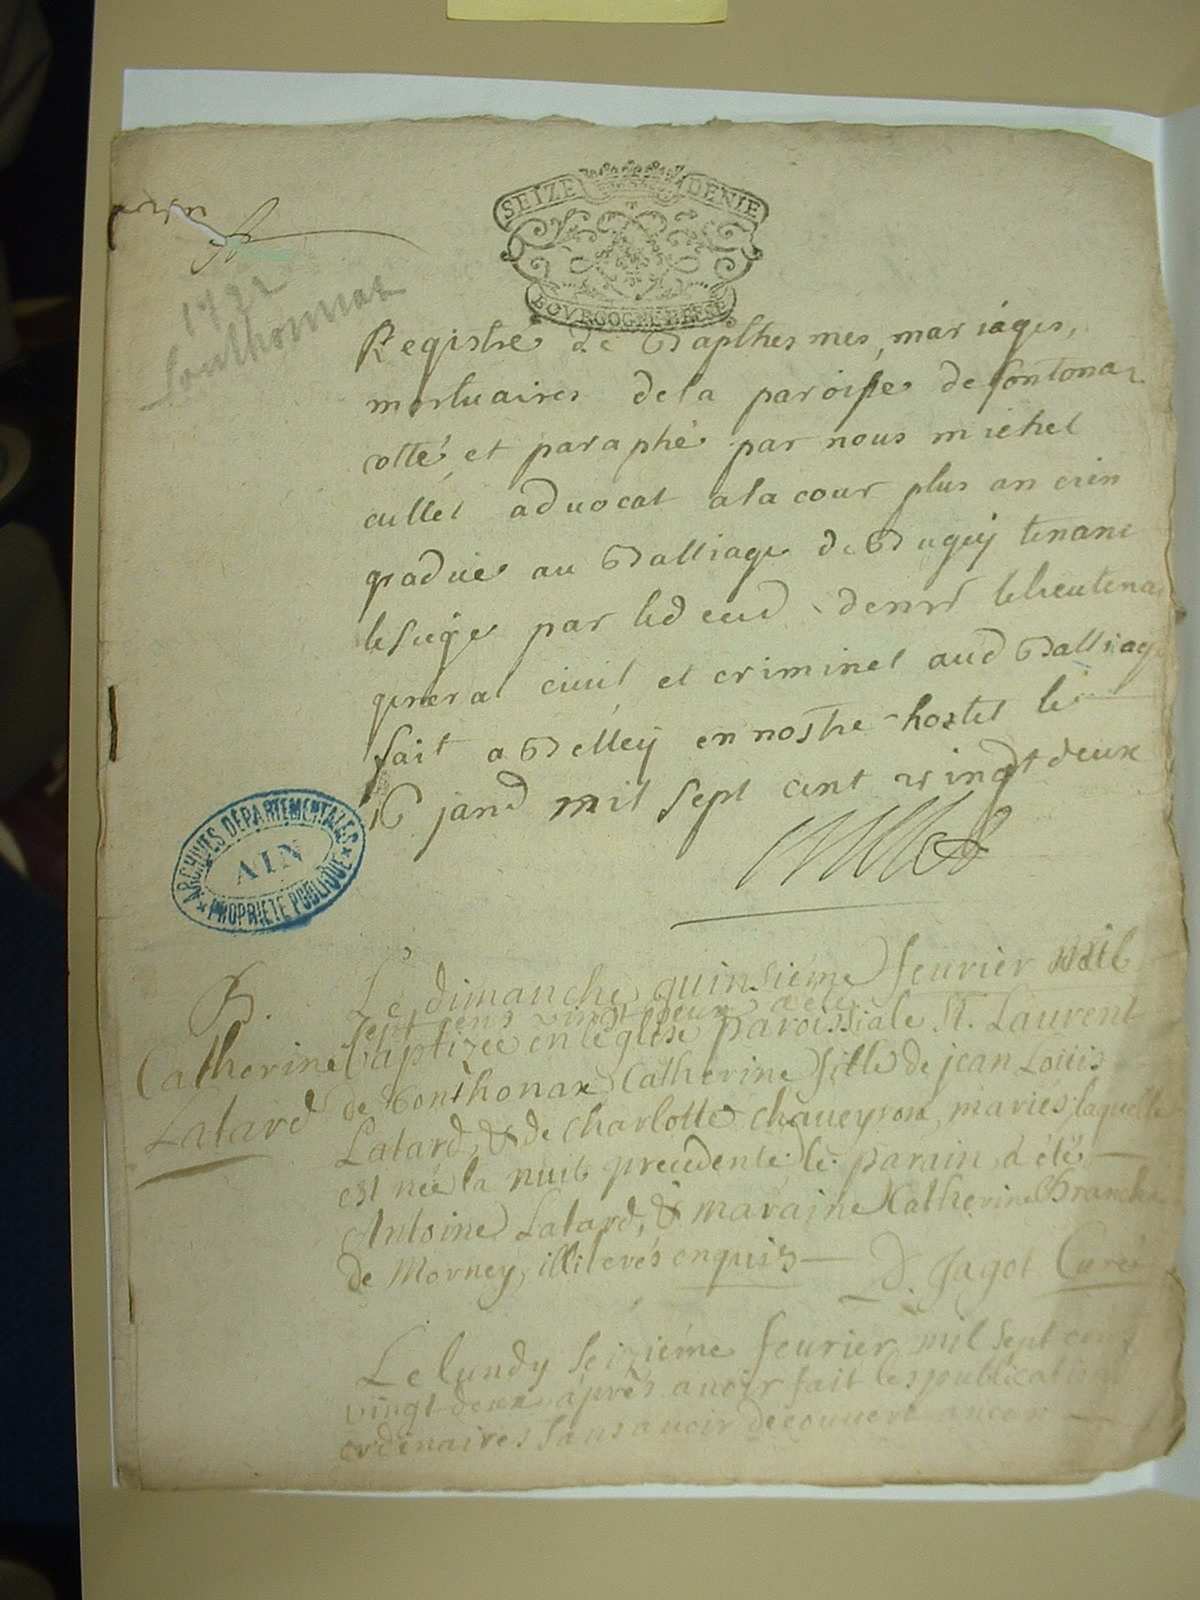 SEIZE DENIE
BOVRGOGNE BRESE
1722
Registre de Bapthesmes, mariages,
mortuaires de la paroisse de sontonax
cotté et paraphé par nous michel
cullet advocat a la cour plus ancien
gradué au Balliage de Bugey tenant
le siege par led ced le lieutena
general civil et criminel aud Balliage
fait a Belley en nostre hostel le
16 janv mil sept cent vingt deux
Cullet
ARCHIVES DÉPARTEMENTALES
AIN
PROPRIÉTÉ PUBLIQUE
B.
Catherine
Latard
Le dimanche quinsiéme feurier mil
sept cens vingt deux a eté
Baptizée en l'eglise paroissiale St. Laurent
de Sonthonax Catherine fille de jean Loüis
Latard, & de Charlotte Chaueyron, mariés; laquelle
est née la nuit precedente; le parain a été
Antoine Latard, & maraine Catherine
de Morney, illiterés enquis D. Jagot Curé
Le lundy seiziéme feurier mil sept cens
vingt deux aprés auoir fait les publications
ordinaires sans auoir découuert aucun